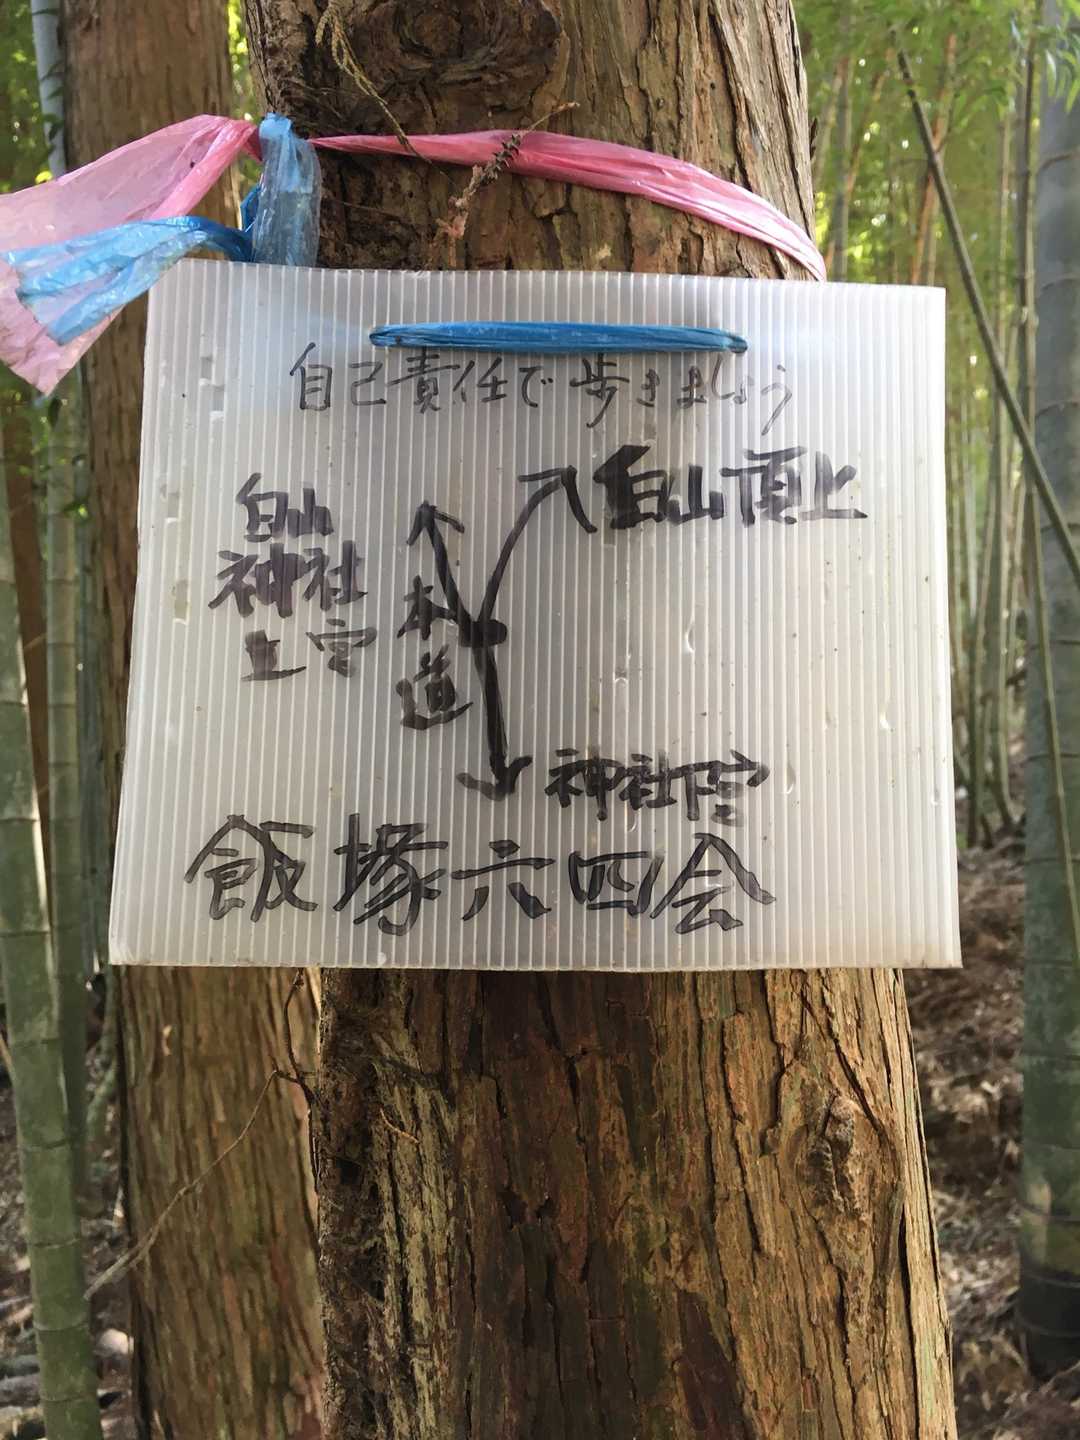 自己責任で歩きましょう
白山頂上
白山
神社
上宮
本道
神社下宮
飯塚六四会